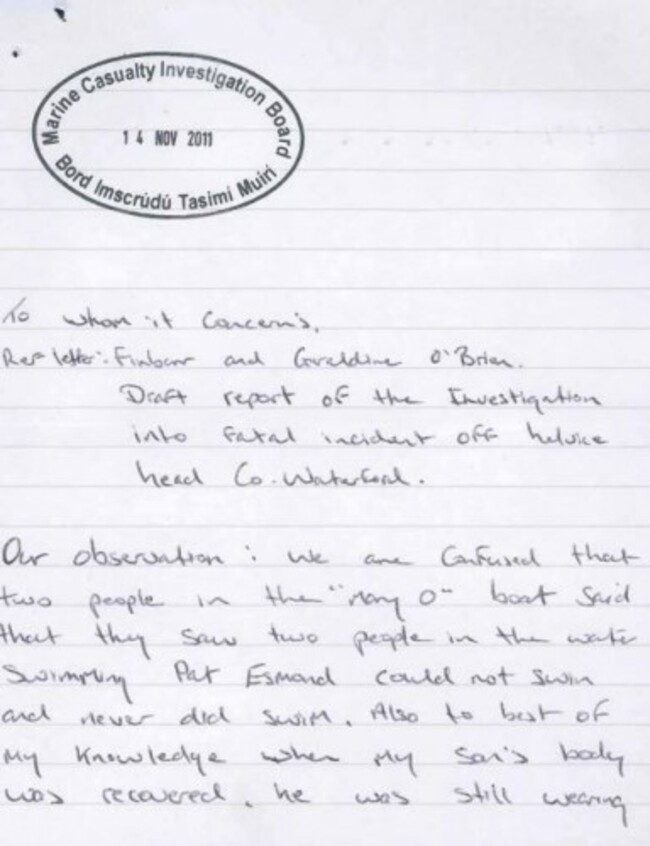 Marine Casualty Investigation Board
14 NOV 2011
Bord Imscrúdú Taismí Muirí
To whom it Concern's,
Ref letter: Finbarr and Geraldine O'Brien.
Draft report of the Investigation
into fatal incident off helvice
head Co. Waterford.
Our observation: we are Confused that
two people in the "Mary O" boat said
that they saw two people in the water
swimming Pat Esmond could not swim
and never did swim. Also to best of
my knowledge when my son's body
was recovered, he was still wearing